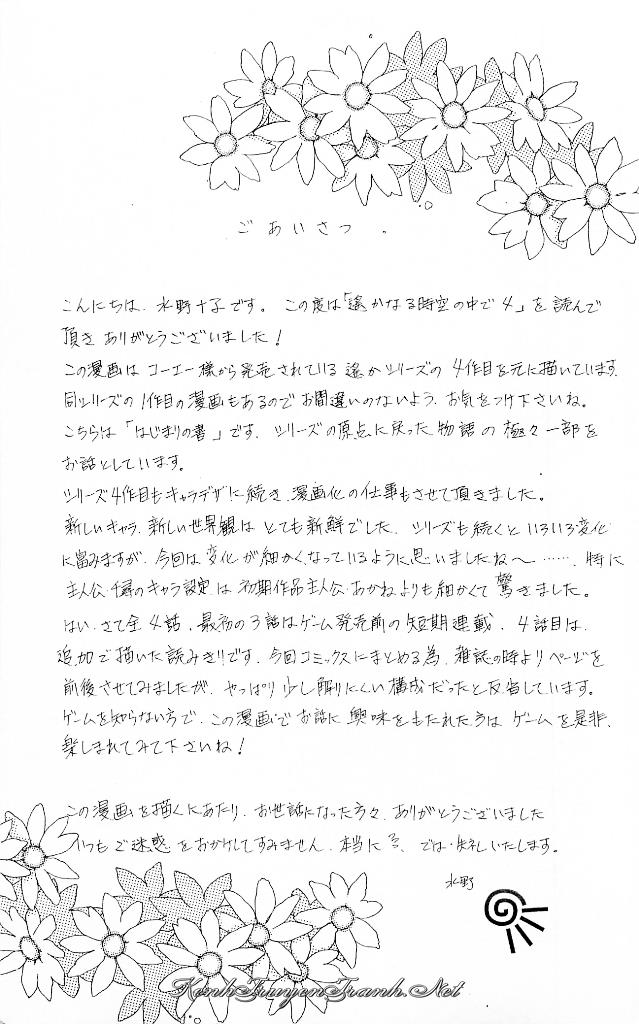 ごあいさつ。
こんにちは、水野十子です。この度は「遙かなる時空の中で4」を読んで
頂きありがとうございました!
この漫画はコーエー様から発売されている遙かシリーズの4作目を元に描いています。
同シリーズの1作目の漫画もあるのでお間違いのないよう、お気をつけ下さいね。
こちらは「はじまりの書」です、シリーズの原点に戻った物語の極々一部を
お話としています。
シリーズ4作目もキャラデザに続き、漫画化の仕事もさせて頂きました。
新しいキャラ、新しい世界観はとても新鮮でした、シリーズも続くといろいろ変化
に富みますが、今回は変化が細かくなっているように思いましたね〜……、特に
主人公・千尋のキャラ設定は初期作品主人公・あかねよりも細かくて驚きました。
はい、さて全4話、最初の3話はゲーム発売前の短期連載、4話目は、
追加で描いた読みきりです、今回コミックスにまとめる為、雑誌の時よりページを
前後させてみましたが、やっぱり少し解りにくい構成だったと反省しています。
ゲームを知らない方で、この漫画でお話に興味をもたれた方はゲームを是非、
楽しまれてみて下さいね!
この漫画を描くにあたり、お世話になった方々、ありがとうございました
いつもご迷惑をおかけしてすみません、本当に、では・失礼いたします。
水野
KenhTruyenTranh.Net